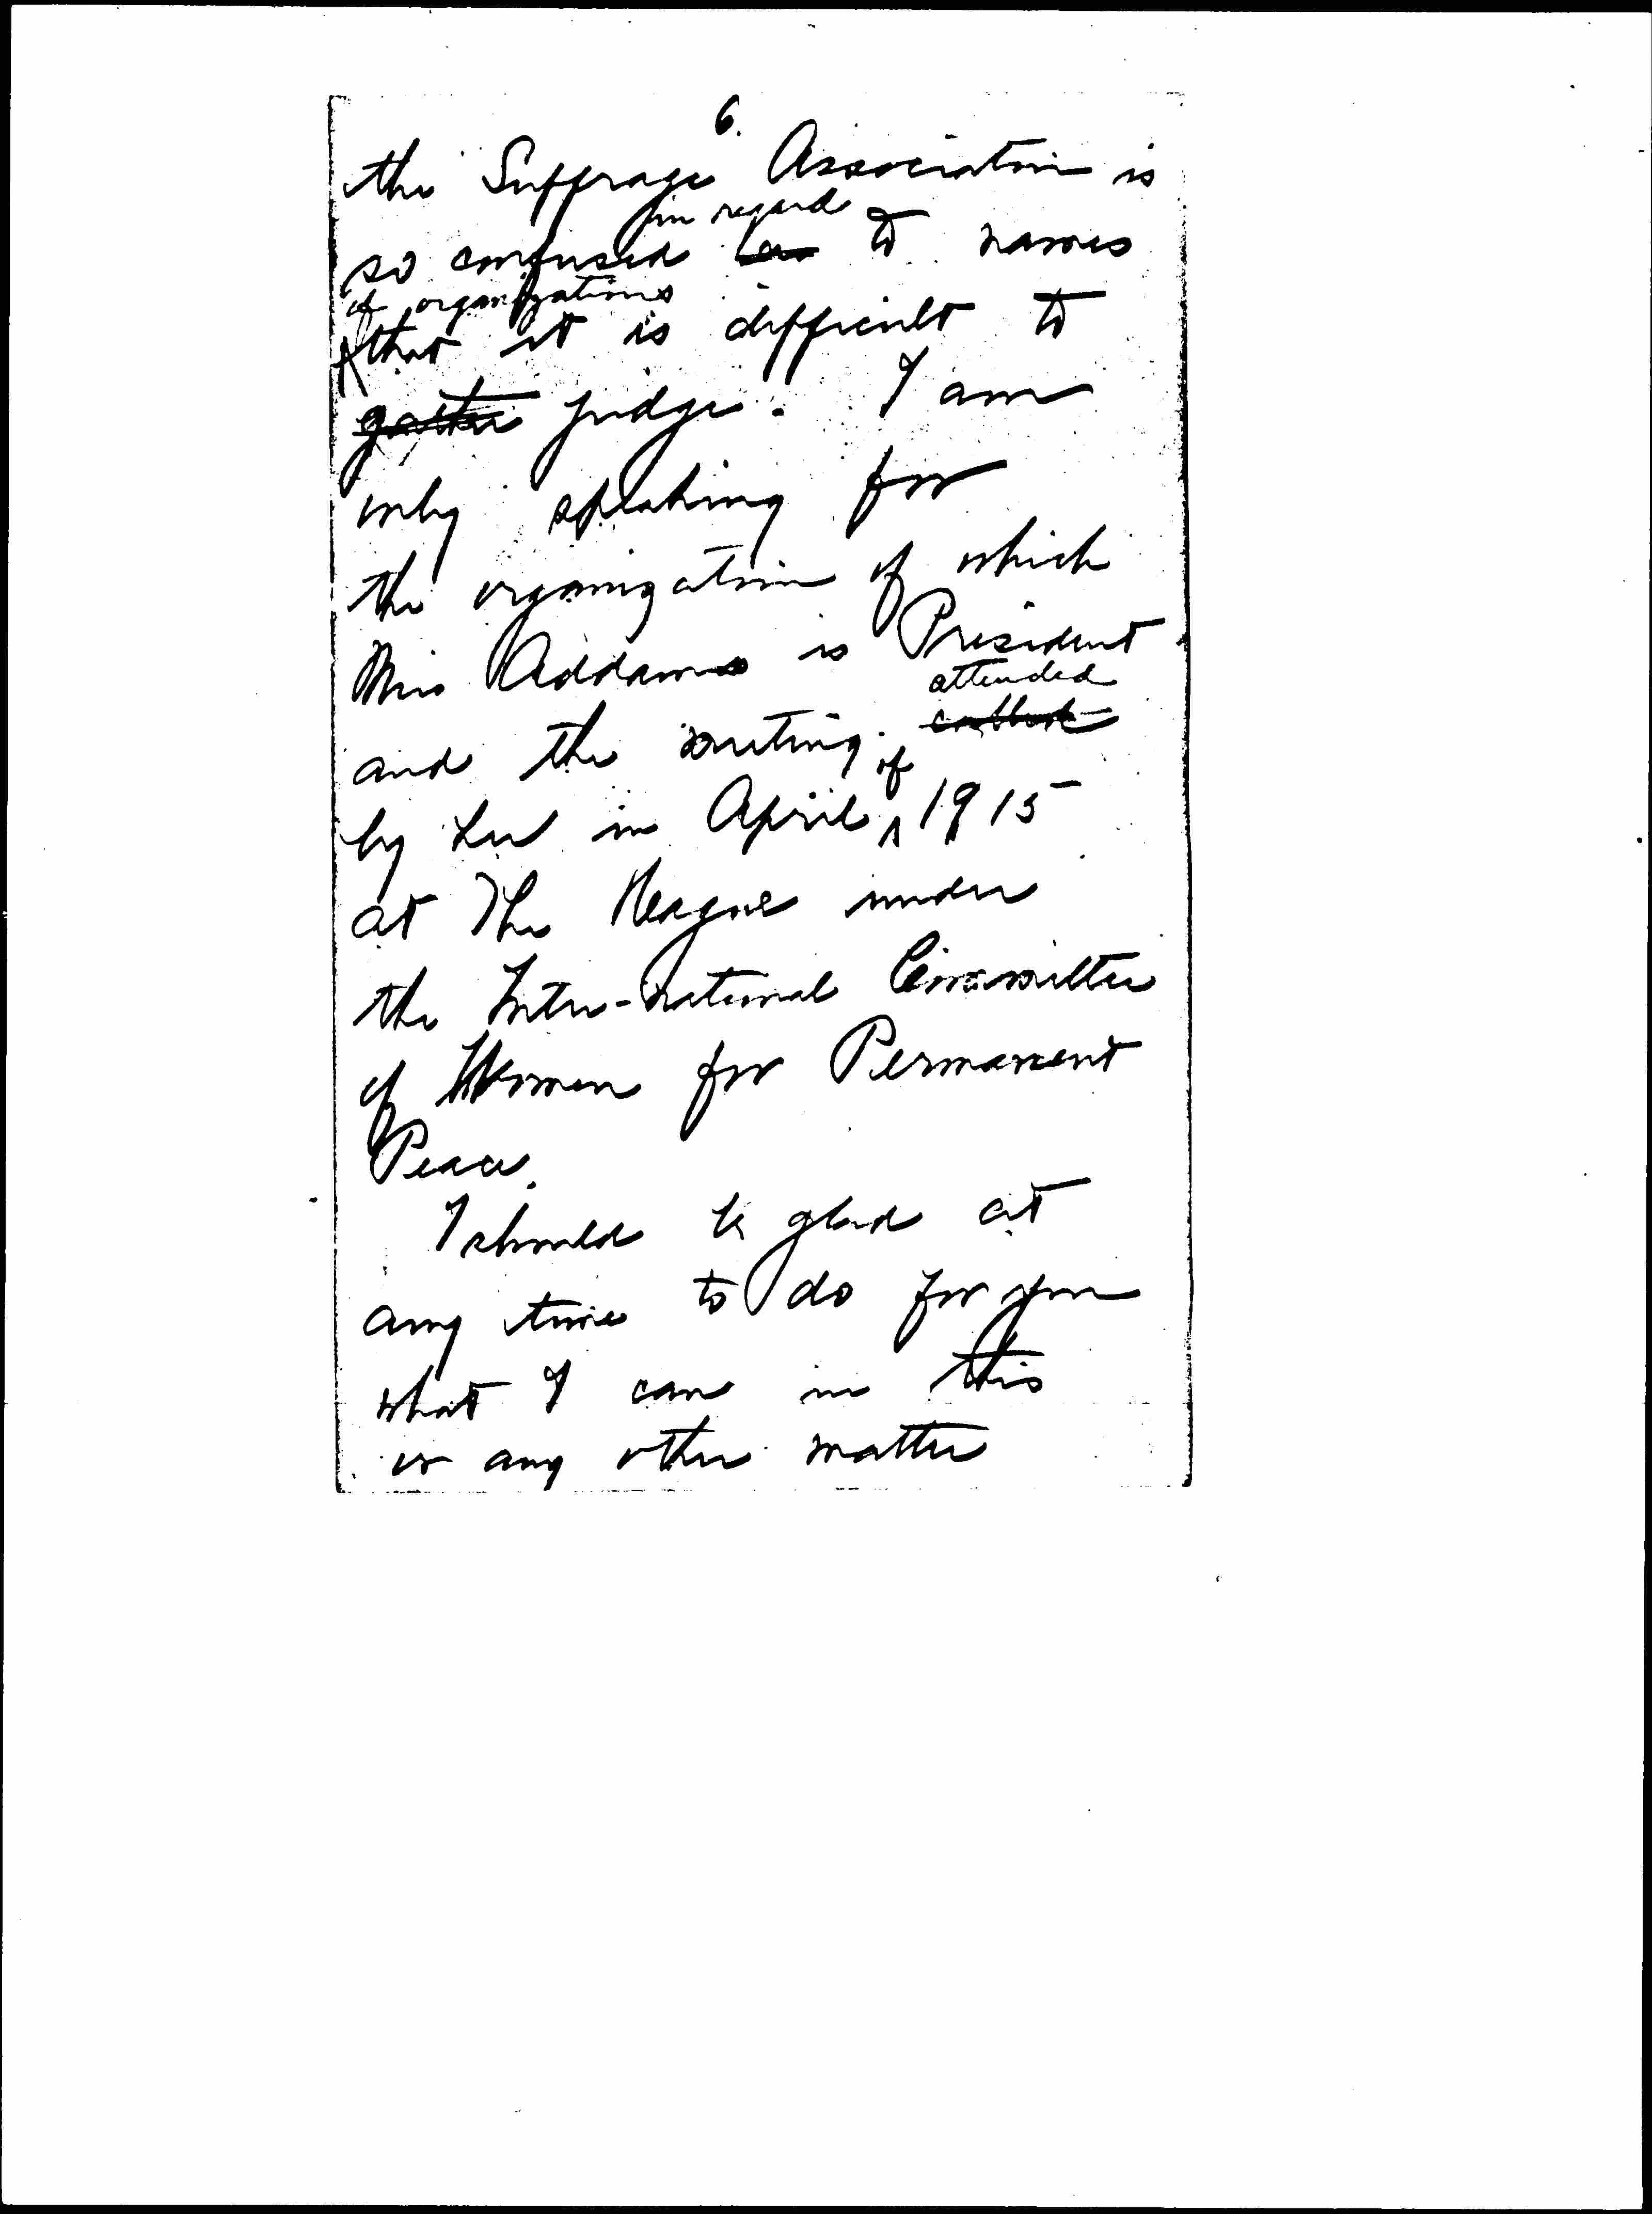 6.
the Suffrage Association is
in regard
so confused as to names
of organizations
that it is difficult to
judge. I am
only speaking for
the organization of which
Miss Addams is President
attended
and the meeting called
of
by her in April 1915
at The Hague under
the Inter-national Committee
of Women for Permanent
Peace.
I should be glad at
any time to do for you
what I can in this
or any other matter